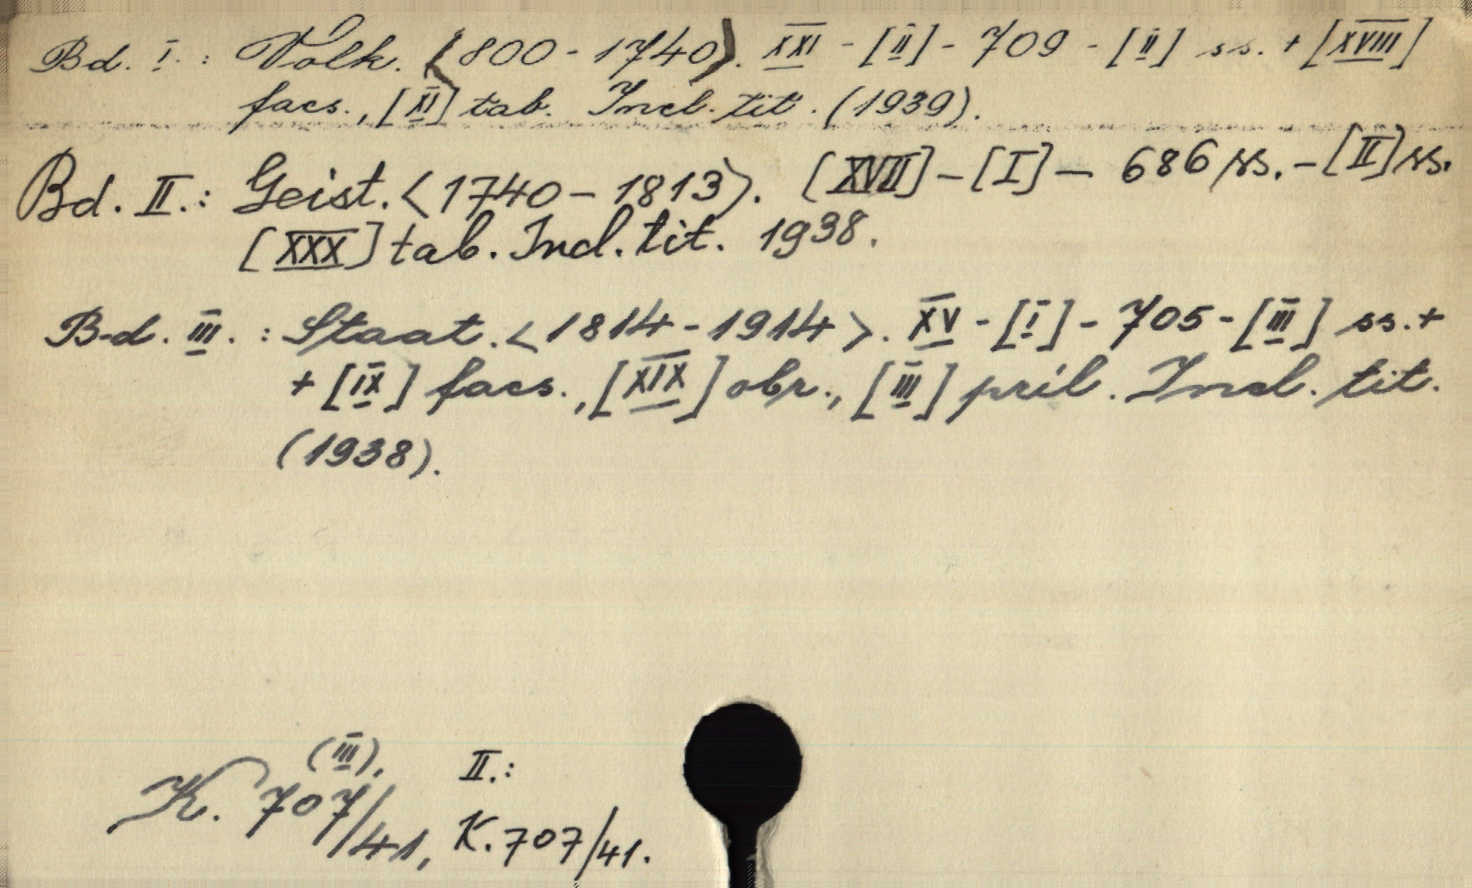 Bd. I. : Volk. <800 - 1740>. XXI - [II] - 709 - [II] ss. + [XVIII]
facs., [XI] tab. Incl. tit. (1939).
Bd. II.: Geist. <1740 - 1813>. [XVII] - [I] - 686 ss. - [II] ss.
[XXX] tab. Incl. tit. 1938.
Bd. III. : Staat. <1814 - 1914>. XV - [I] - 705 - [III] ss. +
+ [IX] facs., [XIX] obr., [III] pril. Incl. tit.
(1938).
(III), II.:
K. 707/41, K. 707/41.